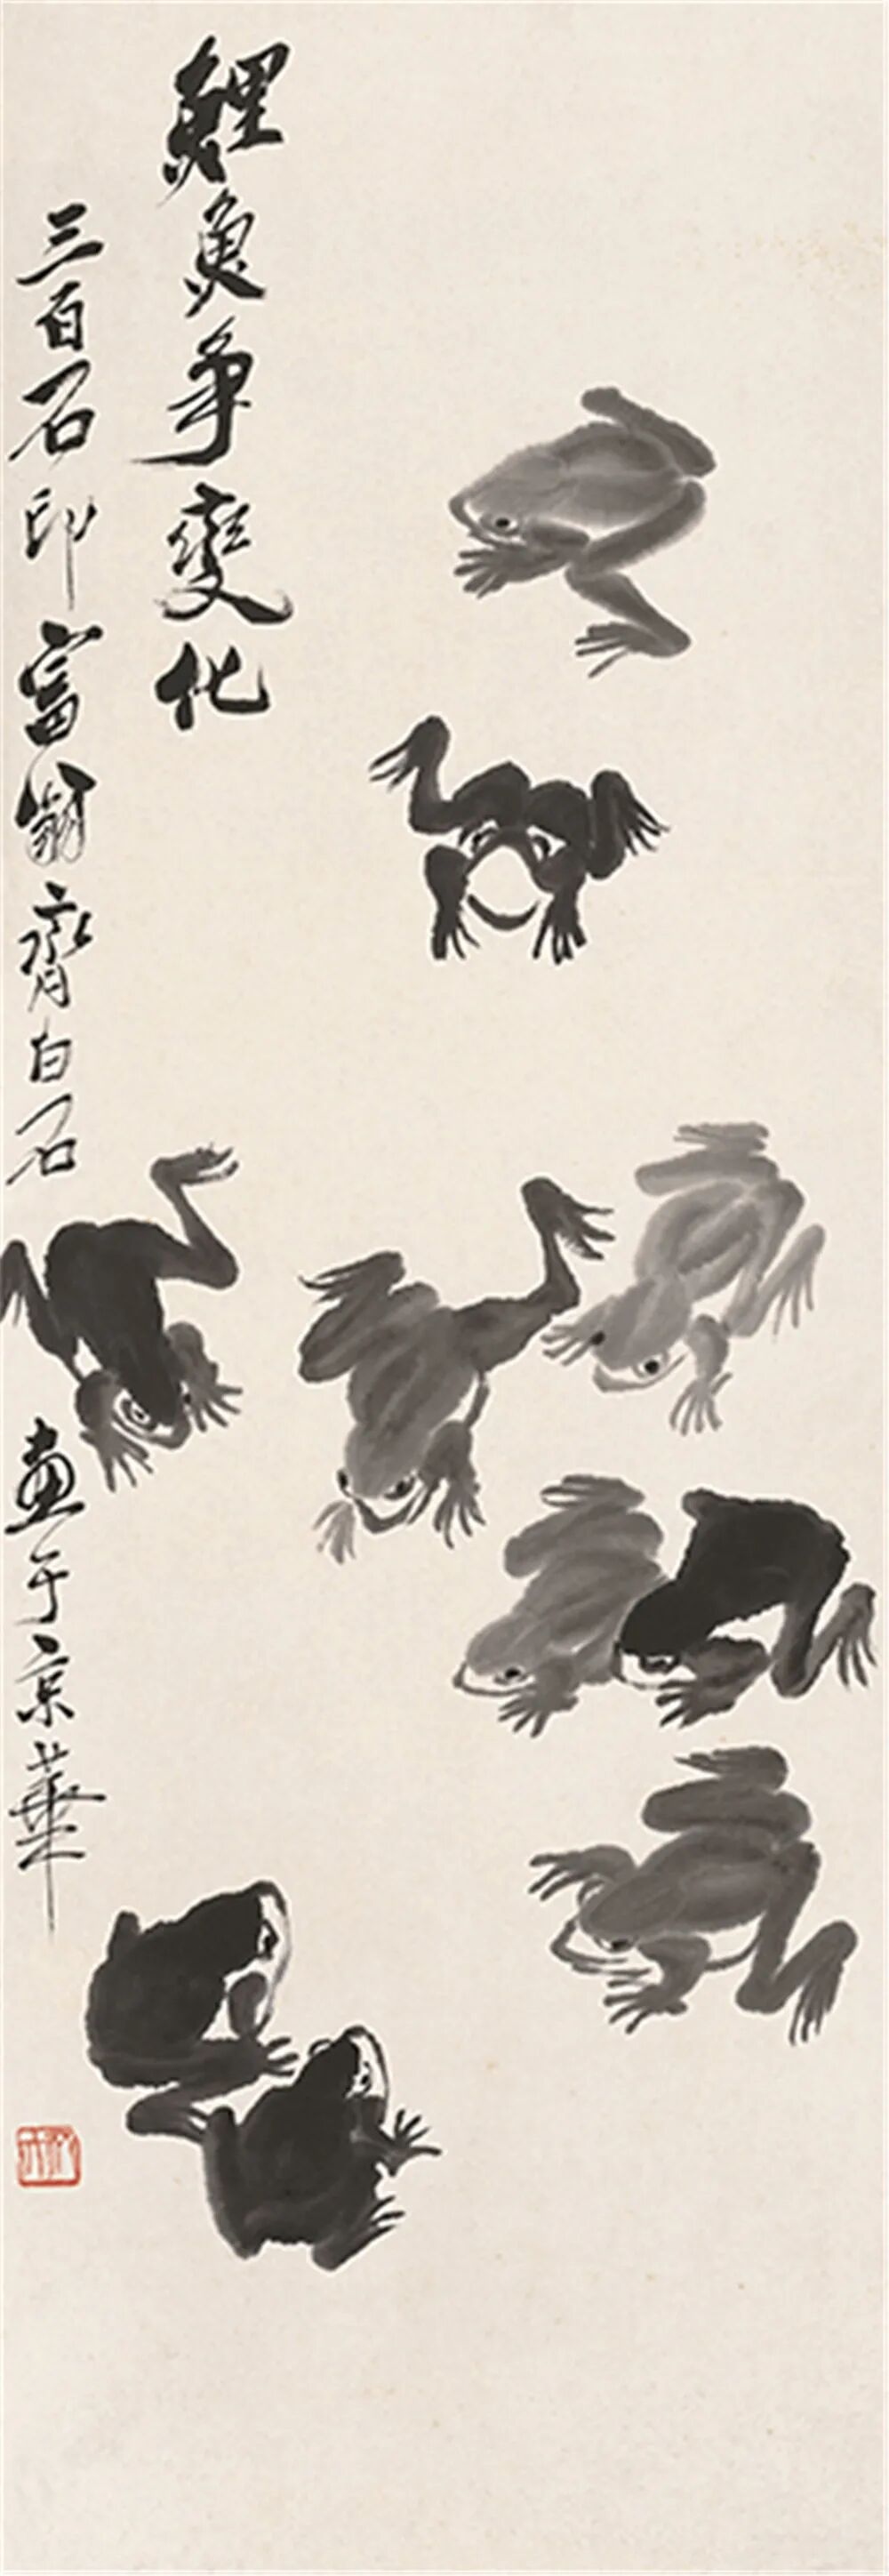 鯉魚爭變化
三百石印富翁齊白石
畫于京華